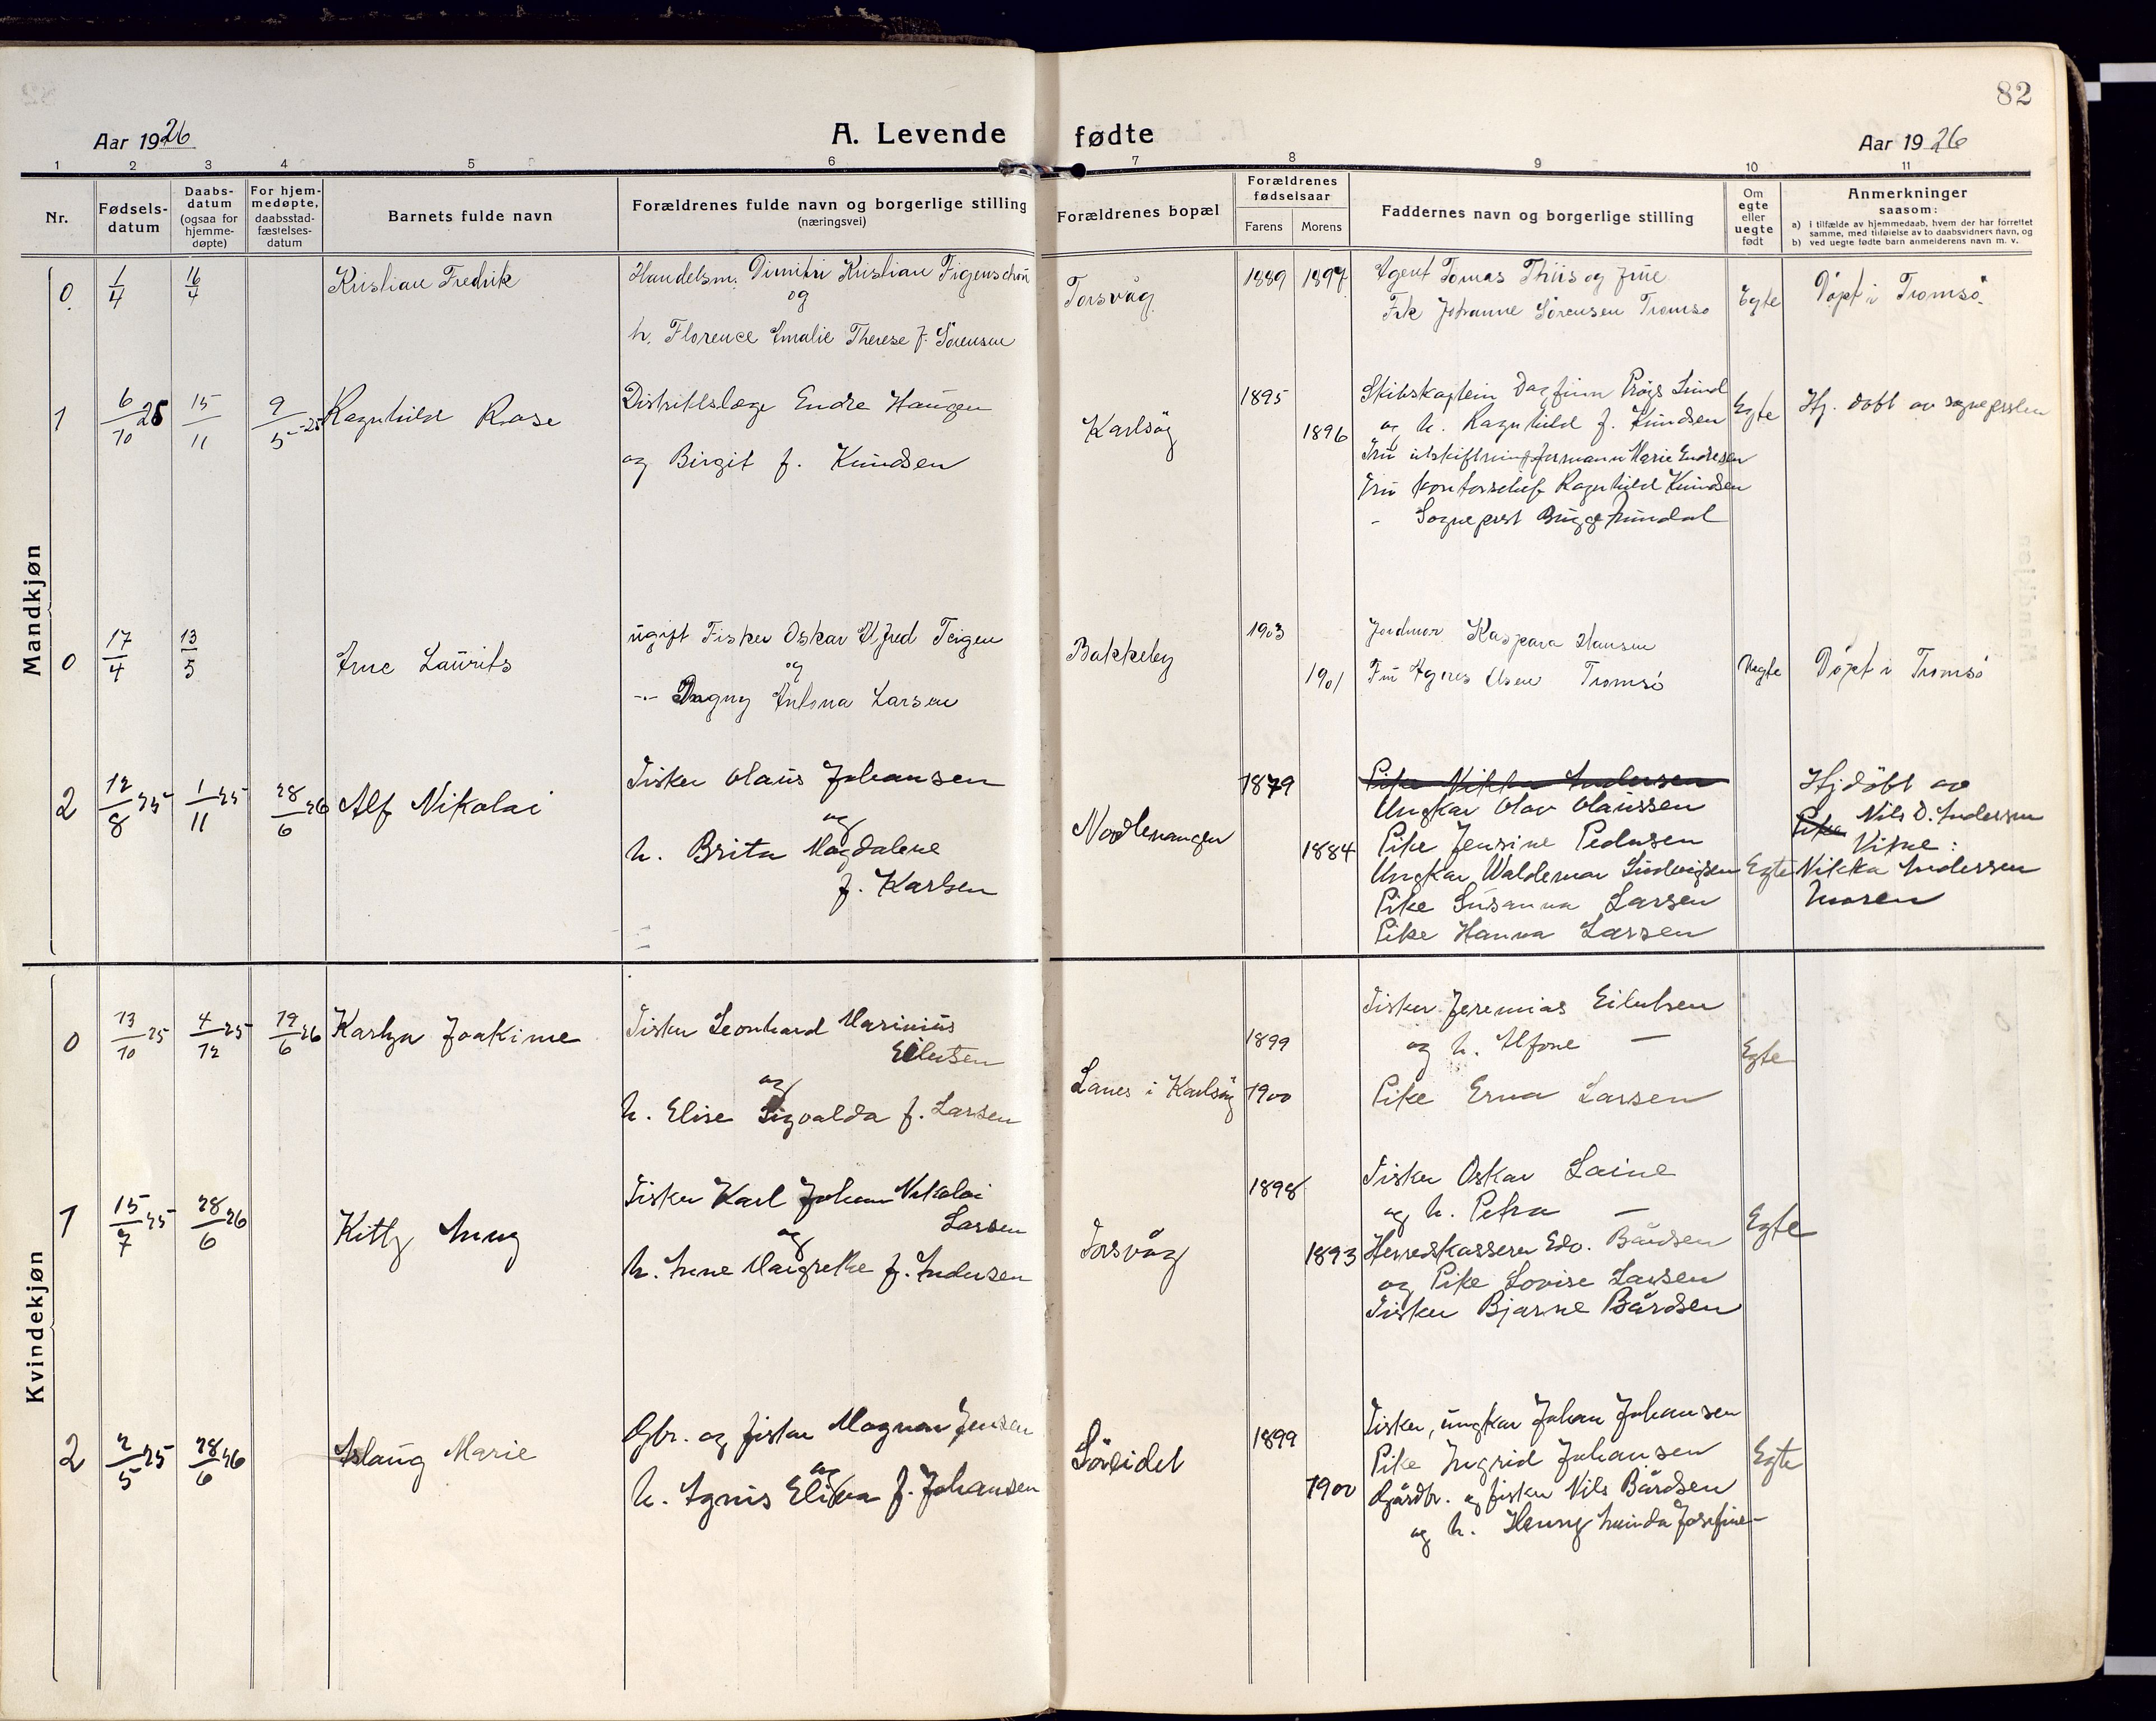 82
Aar 1926
A. Levende fødte
Aar 1926
1 2 3 4 5 6 7 8 9 10 11
Nr.
Fødsels-
datum
Daabs-
datum
(ogsaa for
hjemme-
døpte)
For hjem-
medøpte,
daabsstad-
fæstelses-
datum
Barnets fulde navn
Forældrenes fulde navn og borgerlige stilling
(næringsvei)
Forældrenes bopæl
Forældrenes
fødselsaar
Farens
Morens
Faddernes navn og borgerlige stilling
Om
egte
eller
uegte
født
Anmerkninger
saasom:
a) i tilfælde av hjemmedaab, hvem der har forrettet
samme, med tilføielse av to daabsvidners navn, og
b) ved uegte fødte barn anmelderens navn m. v.
Mandkjøn
0 1/4 16/4 Kristian Fredrik
Handelsm. Dimitri Kristian Figenschou
og
h. Florence Emalie Therese f. Sørensen
Torsvåg
1889 1897
Agent Tomas Thiis og frue
Frk Johanne Sörensen Tromsø
Egte
Döpt i Tromsö
1 6/10 25 15/11 9/5-25 Ragnhild Rose
Distriktslæge Endre Haugen
og Birgit f. Knudsen
Karlsöy
1895
1896
Skibskaptein Dagfinn Lund
og h. Ragnhild f. Knudsen
Fru utskiftningsformann Marie Endresen
Fru kontorschef Ragnhild Knudsen
- Sogneprest Bugge
Egte
Hj. döbt av sognepresten
0 17/4 13/5 Arne Laurits
ugift Fisker Oskar Alfred Teigen
og
-"- Dagny Antona Larsen
Bakkeby
1903
1901
Jordmor Kaspara Hansen
Fru Agnes Olsen Tromsö
Uegte
Döpt i Tromsö
2 12/8 25 1/11 25 28/6 26 Alf Nikolai
Fisker Olaus Johansen
og
h. Brita Magdalene
f. Karlsen
Nordlenangen
1879
1884
Pike Nikka Andersen
Ungkar Olav Olaussen
Pike Jensine Pedersen
Ungkar Waldemar Ludvigsen
Pike Susanna Larsen
Pike Hanna Larsen
Egte
Hjdöbt av
Nils D. Andersen
Pike Vitne:
Nikka Andersen
Moren
Kvindekjøn
0 13/10 25 4/12 25 19/6 26 Karlza Joakime
Fisker Leonhard Marinius
Eilertsen
og
h. Elise Sigvalda f. Larsen
Lanes i Karlsöy
1899
1900
Fisker Jeremias Eilertsen
og h. Alfone —
Pike Erna Larsen
Egte
1 15/7 25 28/6 26 Kitty Anny
Fisker Karl Johan Nikolai
Larsen
og
h. Anne Margrethe f. Andersen
Torsvåg
1898
1893
Fisker Oskar Laine
og h. Petra —
Herredskasserer Edv. Bårdsen
og Pike Lovise Larsen
Fisker Bjarne Bårdsen
Egte
2 2/5 25 28/6 26 Aslaug Marie
Gbr. og fisker Magnar Jensen
og
h. Agnis Elisa f. Johansen
Söreidet
1899
1900
Fisker, ungkar Johan Johansen
Pike Ingrid Johansen
Gårdbr. og fisker Nils Bårdsen
og h. Henny Josefine —
Egte